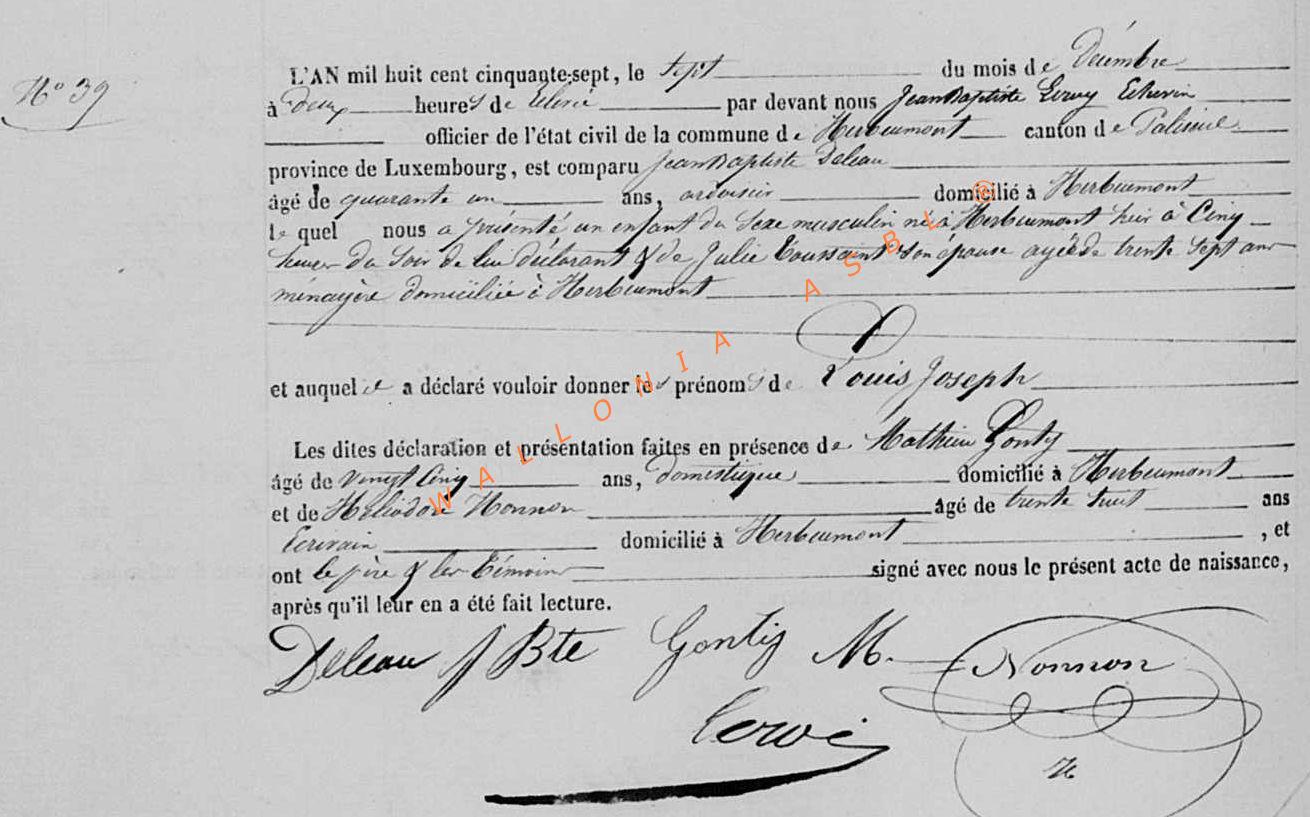 N° 39
L'AN mil huit cent cinquante-sept, le sept du mois de Décembre
à Deux heures de relevé par devant nous Jean Baptiste Echevin
officier de l'état civil de la commune de Herbeumont canton de Paliseul
province de Luxembourg, est comparu Jean Baptiste Deleau
âgé de quarante un ans, ardoisier domicilié à Herbeumont
le quel nous a présenté un enfant du Sexe masculin né à Herbeumont hier à Cinq
heures du Soir de lui déclarant & de Julie Toussaint Son épouse agée de trente Sept ans
ménagère domiciliée à Herbeumont
et auquel il a déclaré vouloir donner les prénoms de Louis Joseph
Les dites déclaration et présentation faites en présence de Mathieu Gonty
âgé de vingt Cinq ans, Domestique domicilié à Herbeumont
et de Héliodore Nonnon âgé de trente huit ans
Ecrivain domicilié à Herbeumont, et
ont le père & les Témoins signé avec nous le présent acte de naissance,
après qu'il leur en a été fait lecture.
Deleau J Bte Gontiz M. Nonnon
H
WALLONIA ASBL ®